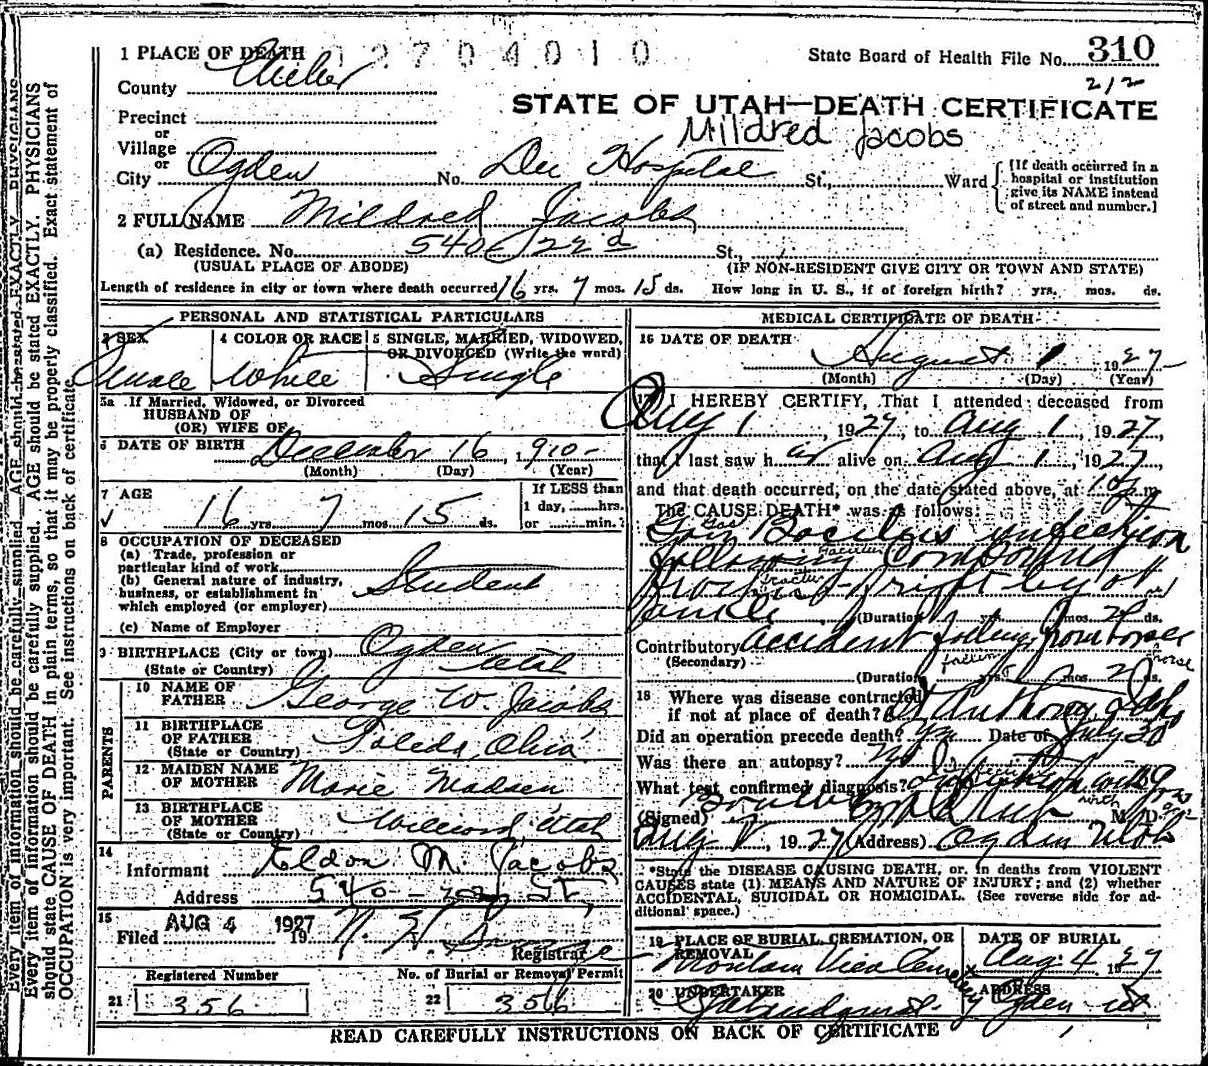 1 PLACE OF DEATH 2 7 0 4 0 1 0
State Board of Health File No. 310
County Weber
212
STATE OF UTAH—DEATH CERTIFICATE
Precinct
Mildred Jacobs
or
Village
or
City Ogden No. Dee Hospital St., Ward
{If death occurred in a hospital or institution give its NAME instead of street and number.]
2 FULL NAME Mildred Jacobs
(a) Residence. No. 540 22nd St.,
(USUAL PLACE OF ABODE) (IF NON-RESIDENT GIVE CITY OR TOWN AND STATE)
Length of residence in city or town where death occurred 16 yrs. 7 mos. 15 ds. How long in U. S., if of foreign birth? yrs. mos. ds.
PERSONAL AND STATISTICAL PARTICULARS
3 SEX 4 COLOR OR RACE 5 SINGLE, MARRIED, WIDOWED,
OR DIVORCED (Write the word)
Female White Single
5a If Married, Widowed, or Divorced
HUSBAND OF
(OR) WIFE OF
6 DATE OF BIRTH December 16, 1910
(Month) (Day) (Year)
7 AGE If LESS than
1 day, hrs.
16 yrs 7 mos. 15 ds. or min.?
8 OCCUPATION OF DECEASED
(a) Trade, profession or
particular kind of work
(b) General nature of industry,
business, or establishment in
which employed (or employer)
Student
(c) Name of Employer
9 BIRTHPLACE (City or town) Ogden
(State or Country) Utah
PARENTS
10 NAME OF
FATHER George W. Jacobs
11 BIRTHPLACE
OF FATHER
(State or Country) Toledo, Ohio
12 MAIDEN NAME
OF MOTHER Marie Madsen
13 BIRTHPLACE
OF MOTHER
(State or Country) Willard, Utah
14
Informant Eldon M. Jacobs
Address 540 - 22nd ST,
15
Filed AUG 4 1927 19 N. H.
Registrar
Registered Number No. of Burial or Removal Permit
21 356 22 356
MEDICAL CERTIFICATE OF DEATH
16 DATE OF DEATH
August 1 1927
(Month) (Day) (Year)
17 I HEREBY CERTIFY, That I attended deceased from
Aug 1, 1927, to Aug 1, 1927,
that I last saw her alive on Aug 1, 1927
and that death occurred, on the date stated above, at m
The CAUSE DEATH* was as follows:
Gas Bacillus infection
following Compound
fracture right leg at
ankle (Duration) yrs. mos. 2 ds.
Contributory accident falling from horse
(Secondary) falling horse
(Duration) yrs. mos. 2 ds.
18 Where was disease contracted
if not at place of death? St Anthony Idaho
Did an operation precede death? Date of July 30
Was there an autopsy? No
What test confirmed diagnosis?
(Signed) M. D.
Aug 1, 1927 (Address) Ogden Utah
*State the DISEASE CAUSING DEATH, or, in deaths from VIOLENT
CAUSES state (1) MEANS AND NATURE OF INJURY; and (2) whether
ACCIDENTAL, SUICIDAL OR HOMICIDAL. (See reverse side for ad-
ditional space.)
19 PLACE OF BURIAL, CREMATION, OR
REMOVAL
DATE OF BURIAL
Mountain View Cemetery Aug. 4 1927
20 UNDERTAKER ADDRESS
Ogden Ut
READ CAREFULLY INSTRUCTIONS ON BACK OF CERTIFICATE
Every item of information should be carefully supplied. AGE should be stated EXACTLY. PHYSICIANS
should state CAUSE OF DEATH in plain terms, so that it may be properly classified. Exact statement of
OCCUPATION is very important. See instructions on back of certificate.